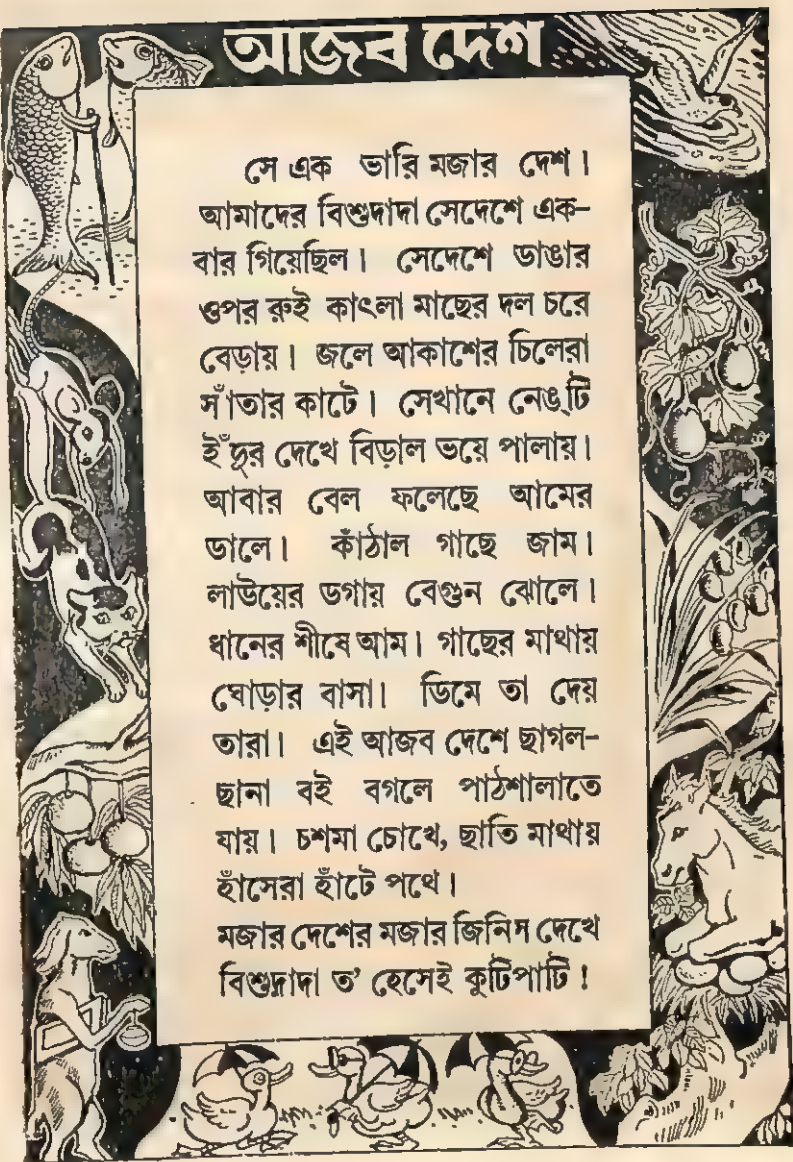 আজব দেশ
সে এক ভারি মজার দেশ।
আমাদের বিশুদাদা সেদেশে এক-
বার গিয়েছিল। সেদেশে ডাঙার
ওপর রুই কাৎলা মাছের দল চরে
বেড়ায়। জলে আকাশের চিলেরা
সাঁতার কাটে। সেখানে নেঙ্‌টি
ইঁদুর দেখে বিড়াল ভয়ে পালায়।
আবার বেল ফলেছে আমের
ডালে। কাঁঠাল গাছে জাম।
লাউয়ের ডগায় বেগুন ঝোলে।
ধানের শীষে আম। গাছের মাথায়
ঘোড়ার বাসা। ডিমে তা দেয়
তারা। এই আজব দেশে ছাগল-
ছানা বই বগলে পাঠশালাতে
যায়। চশমা চোখে, ছাতি মাথায়
হাঁসেরা হাঁটে পথে।
মজার দেশের মজার জিনিস দেখে
বিশুদাদা ত' হেসেই কুটিপাটি!